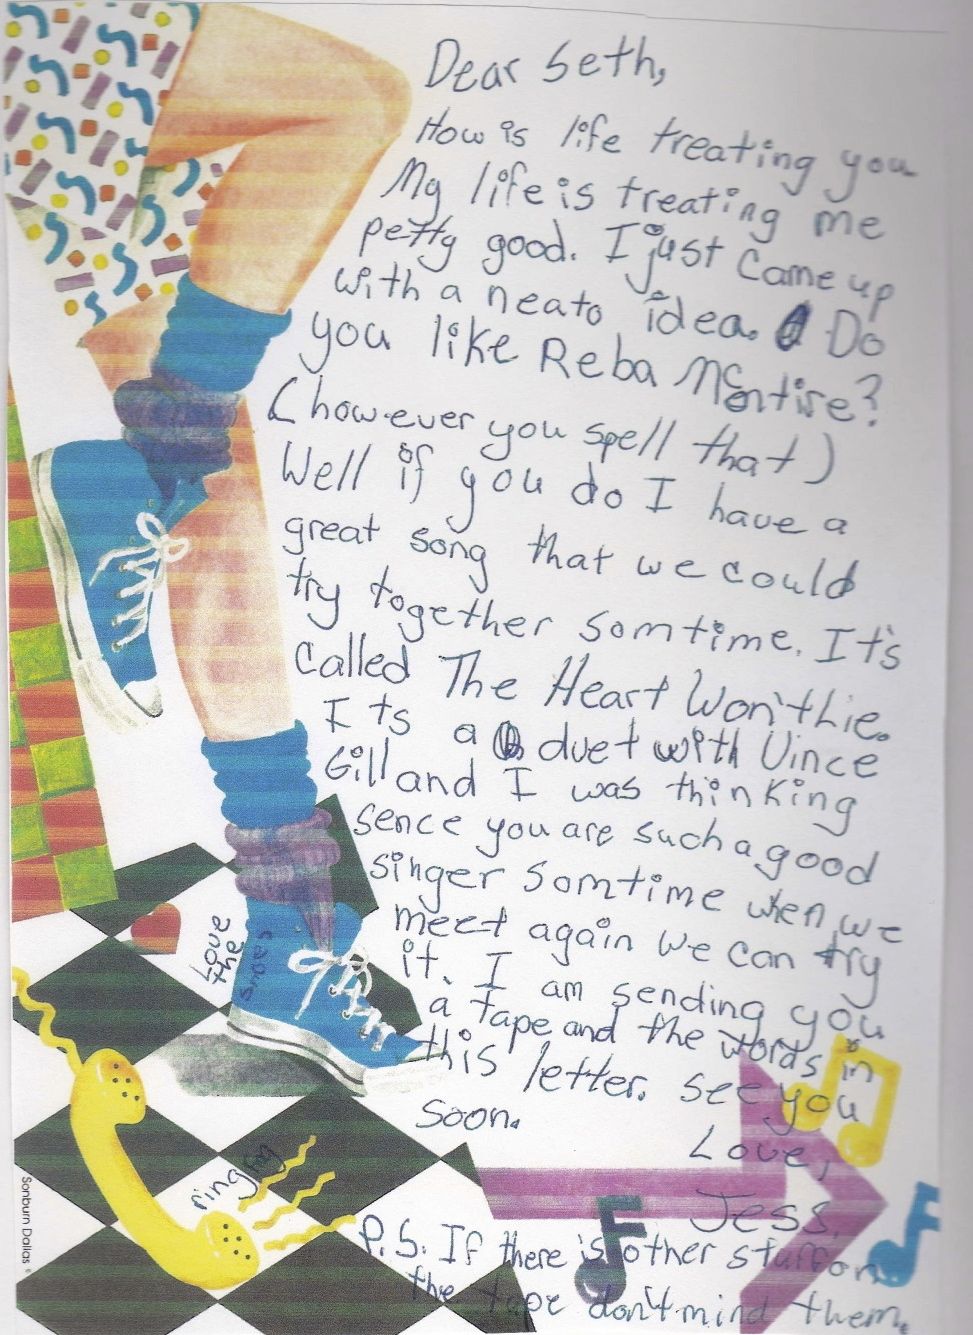 Dear Seth,
How is life treating you
My life is treating me
petty good. I just came up
with a neato idea. Do
you like Reba McEntire?
(however you spell that)
Well if you do I have a
great song that we could
try together somtime. It's
called The Heart Won't Lie.
Its a duet with Vince
Gill and I was thinking
sence you are such a good
singer somtime when we
meet again we can try
it. I am sending you
a tape and the words in
this letter. See you
soon.
Love,
Jess.
P.S. If there is other stuff on
the tape don't mind them.
Love
the
shoes
ring
Sonburn Dallas ©